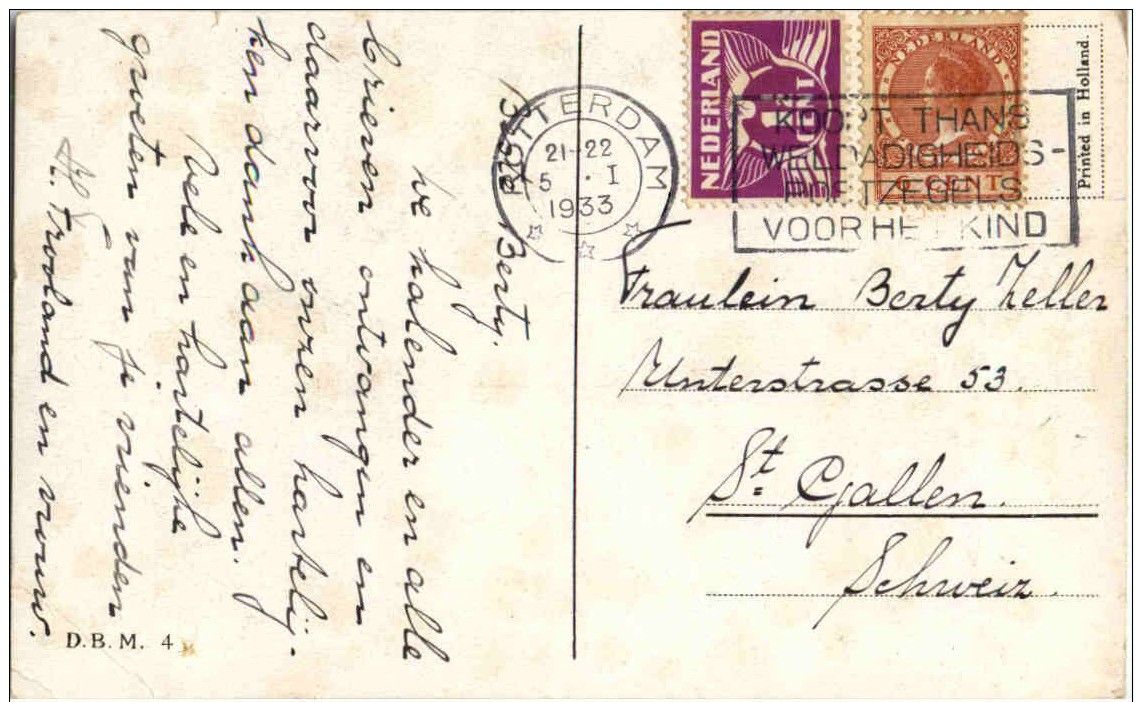 Beste Berty.
We kalender en alle
brieven ontvangen en
daarvoor onzen hartelij-
ken dank aan allen.
Vele en hartelijke
groeten van je vrienden
en vrouw.
D.B.M. 4
ROTTERDAM
21-22
5 . I
1933
NEDERLAND
CENT
NEDERLAND
6 CENT
KOOPT THANS
WELDADIGHEIDS-
POSTZEGELS
VOOR HET KIND
Printed in Holland.
Fraulein Berty Zeller
Unterstrasse 53.
St. Gallen.
Schweiz.